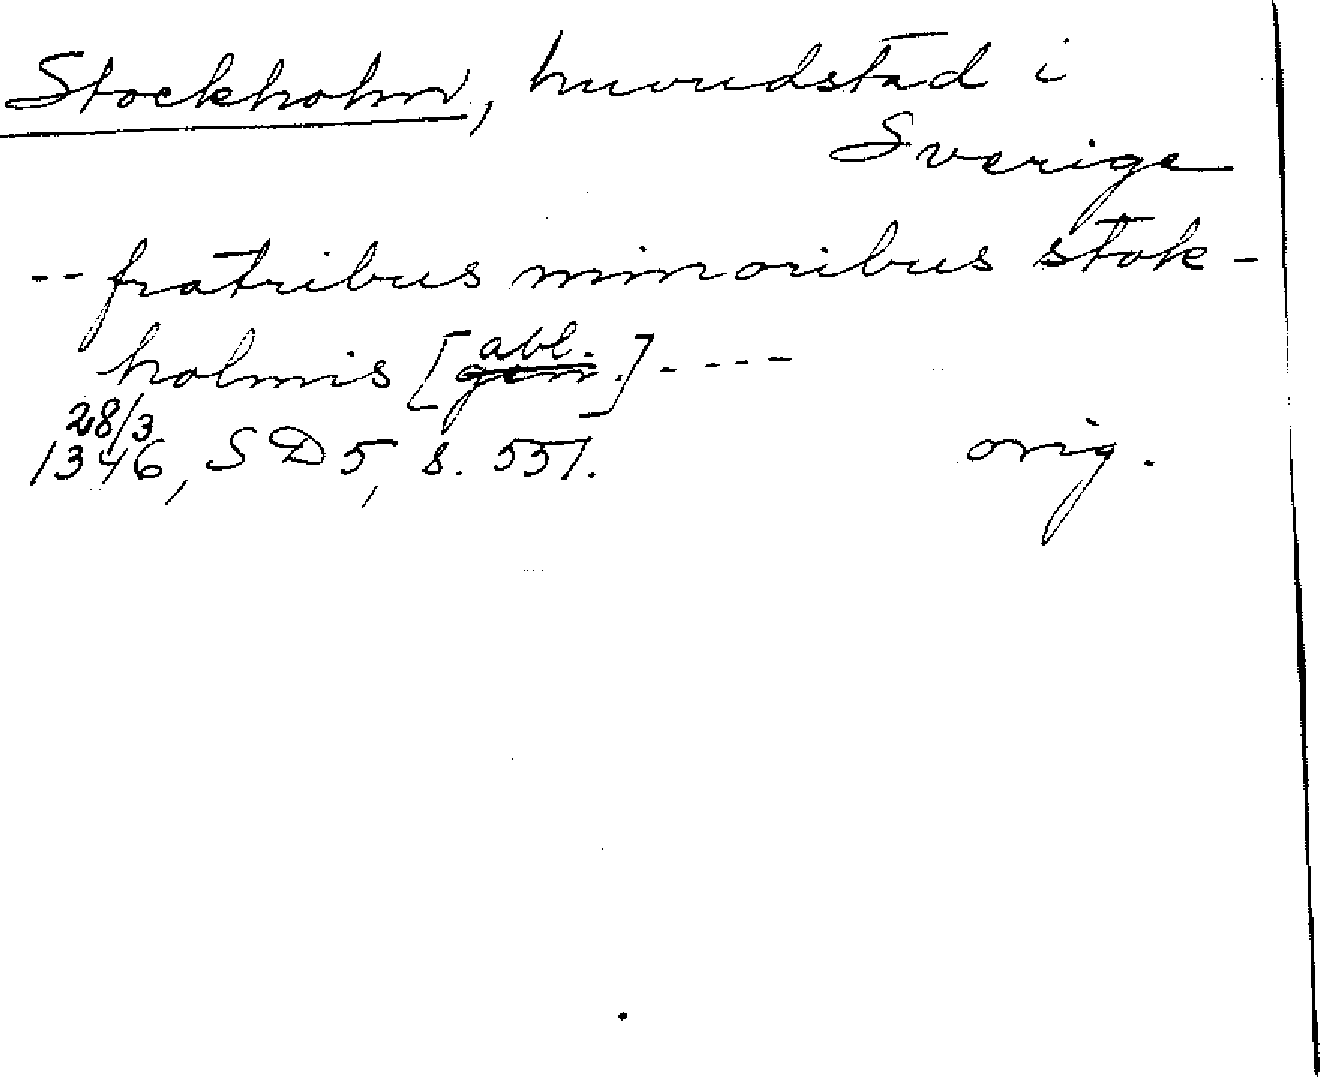 Stockholm, huvudstad i
Sverige
-- fratribus minoribus stok-
holmis [abl. gen.] ----
28/3
1346, SD 5, s. 551.
orig.